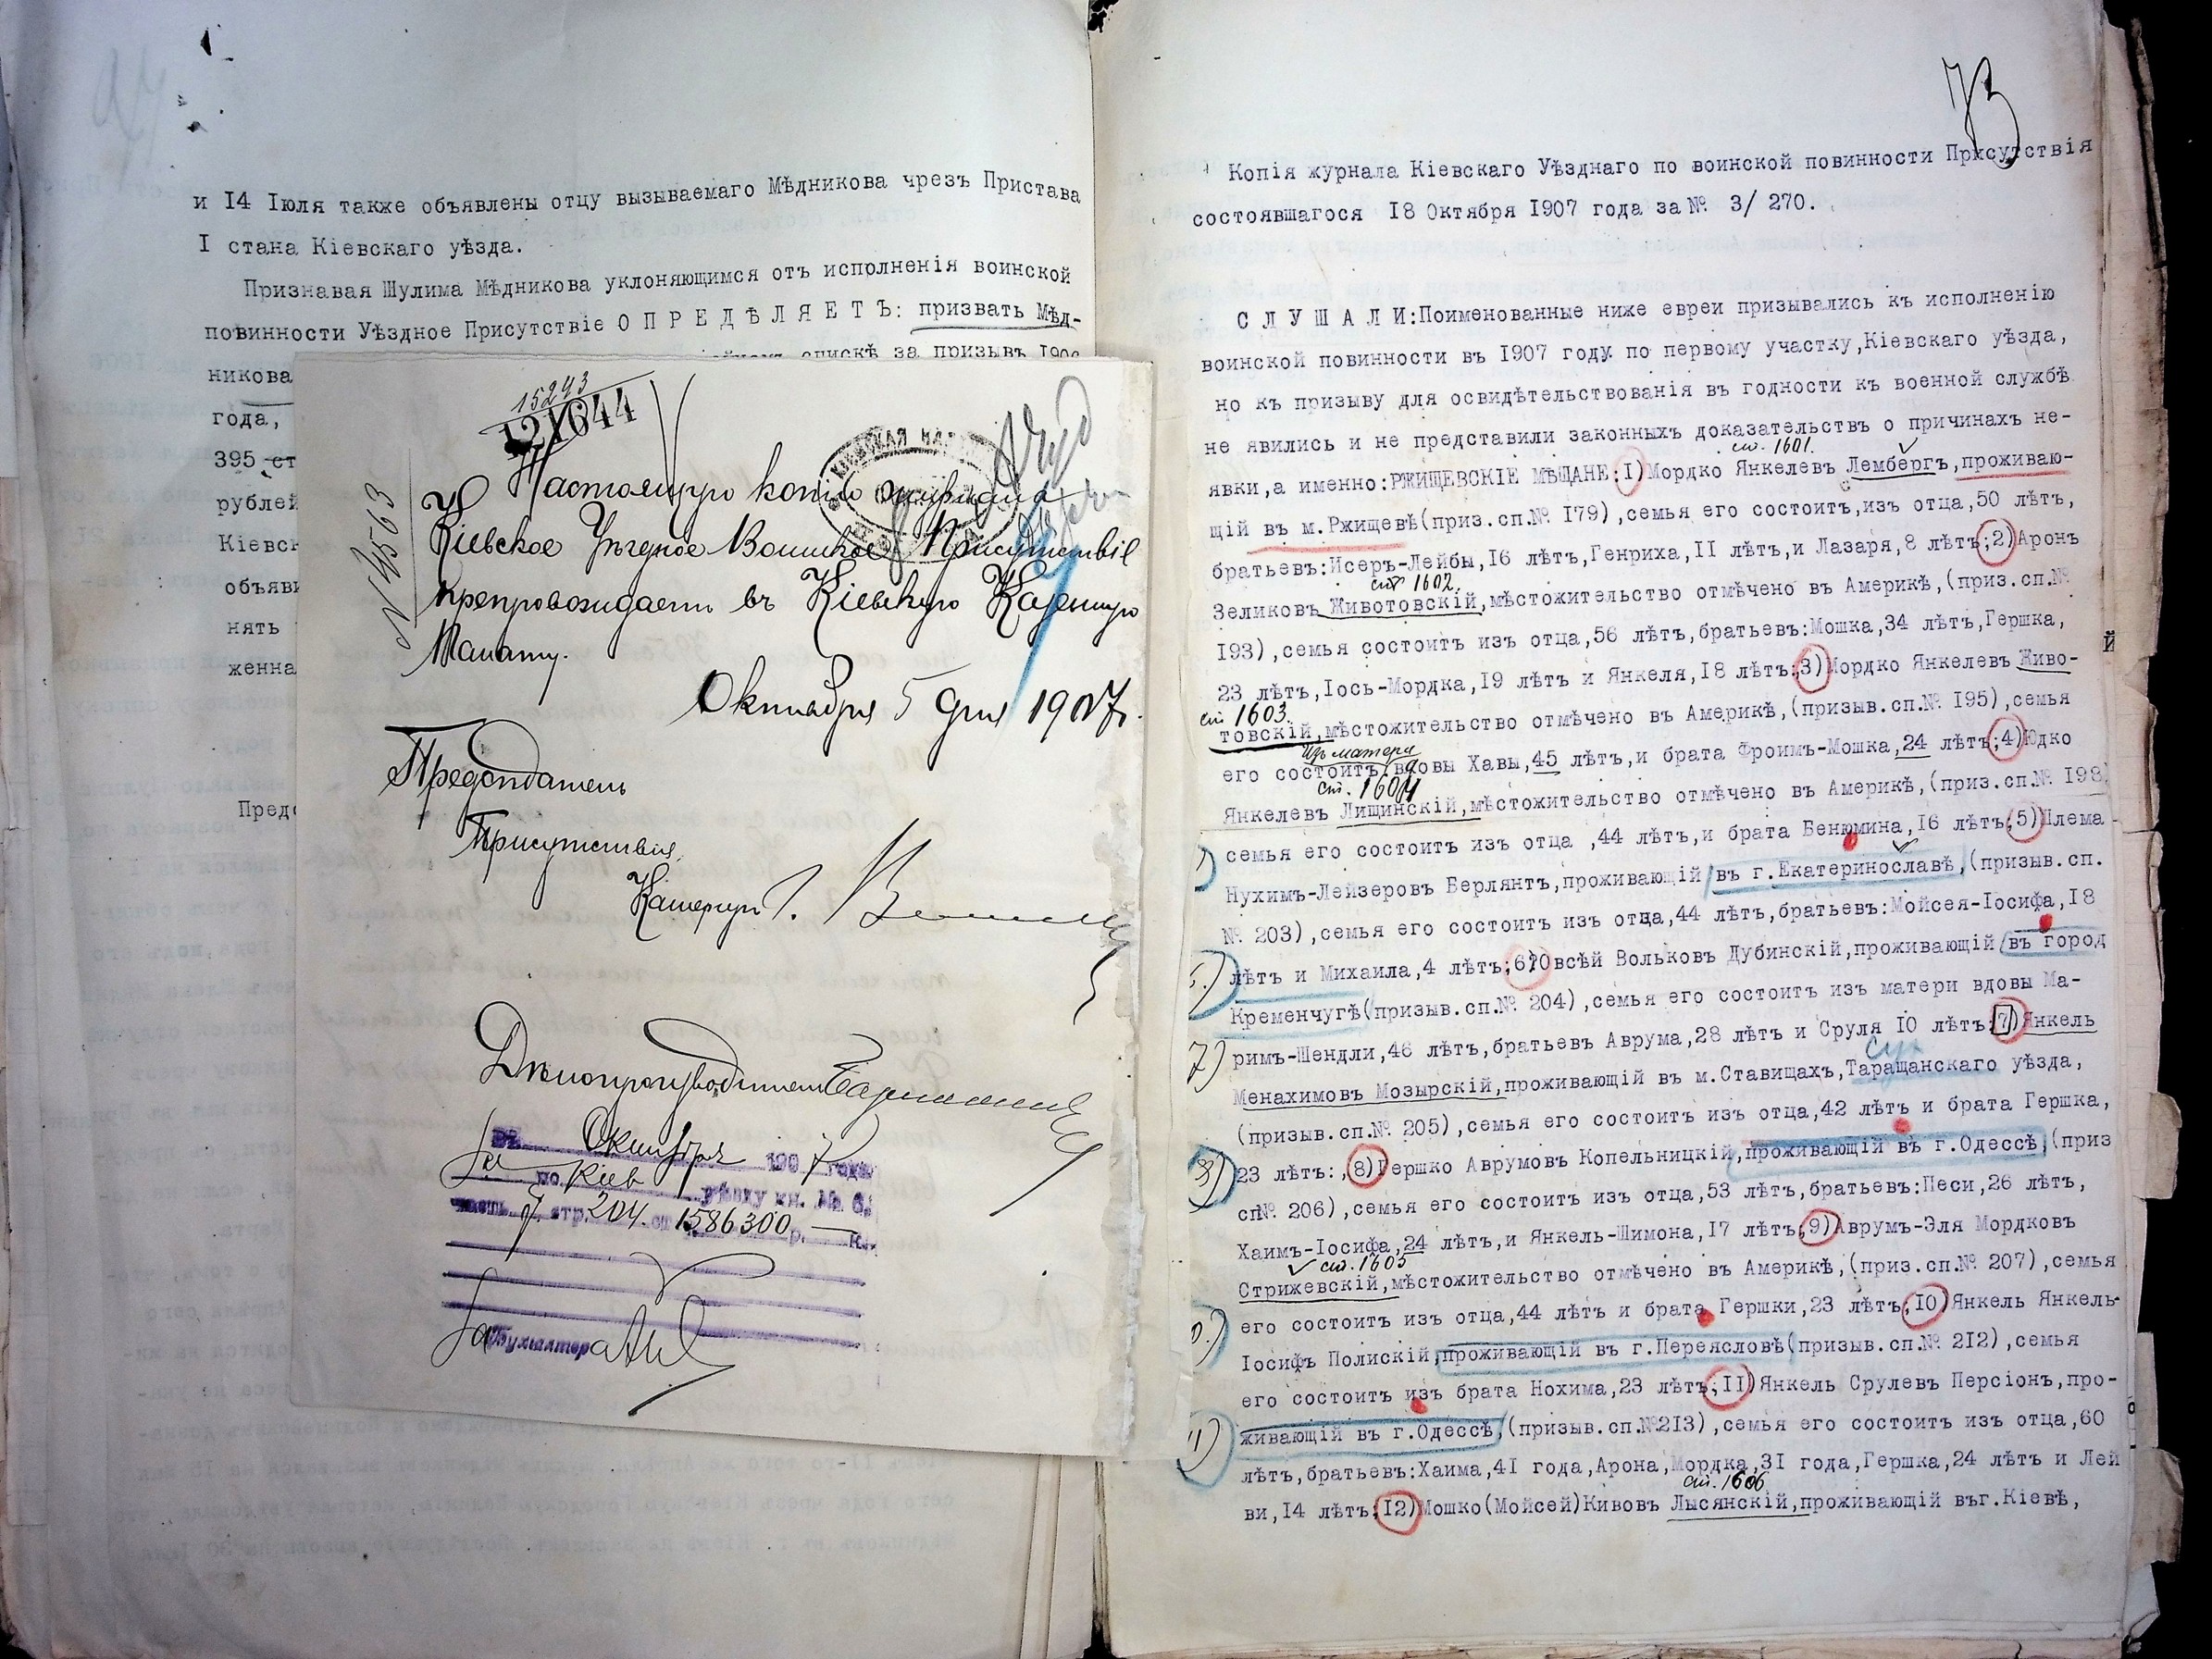 и I4 Iюля также объявлены отцу вызываемаго Мѣдникова чрезъ Пристава
I стана Кіевскаго уѣзда.
Признавая Шулима Мѣдникова уклоняющимся отъ исполненія воинской
повинности Уѣздное Присутствіе О П Р Е Д Ѣ Л Я Е Т Ъ: призвать Мѣд-
никова спискѣ за призывъ I906
года,
395 ст
рублей
Кіевск
объяви
нять
женна
Предс
15243
121644
№ 4563
Настоящую копію журнала
Кіевское Уѣздное Воинское Присутствіе
препровождаетъ въ Кіевскую Казенную
Палату.
Октября 5 дня 1907 г.
Предсѣдатель
Присутствія,
Камергеръ
Дѣлопроизводитель
въ Октябрѣ 1907 года
по Кіев уѣзду кн. № 6,
часть 7, стр. 204. ст. 1586 300 р. — к.
За Бухгалтера
73
Копія журнала Кіевскаго Уѣзднаго по воинской повинности Присутствія
состоявшагося I8 Октября I907 года за № 3/ 270.
С Л У Ш А Л И:Поименованные ниже евреи призывались къ исполненію
воинской повинности въ I907 году по первому участку,Кіевскаго уѣзда,
но къ призыву для освидѣтельствованія въ годности къ военной службѣ
не явились и не представили законныхъ доказательствъ о причинахъ не-
ст. 1601.
явки,а именно:РЖИЩЕВСКІЕ МѢЩАНЕ:I)Мордко Янкелевъ Лембергъ,проживаю-
щій въ м.Ржищевѣ(приз.сп.№ I79),семья его состоитъ,изъ отца,50 лѣтъ,
братьевъ:Исеръ-Лейбы,I6 лѣтъ,Генриха,II лѣтъ,и Лазаря,8 лѣтъ;2)Аронъ
ст 1602.
Зеликовъ Животовскій,мѣстожительство отмѣчено въ Америкѣ,(приз.сп.№
I93),семья состоитъ изъ отца,56 лѣтъ,братьевъ:Мошка,34 лѣтъ,Гершка,
23 лѣтъ,Iось-Мордка,I9 лѣтъ и Янкеля,I8 лѣтъ;3)Мордко Янкелевъ Живо-
ст 1603.
товскій,мѣстожительство отмѣчено въ Америкѣ,(призыв.сп.№ I95),семья
изъ матери
его состоитъ вдовы Хавы,45 лѣтъ,и брата Фроимъ-Мошка,24 лѣтъ;4)Юдко
ст. 1604
Янкелевъ Лищинскій,мѣстожительство отмѣчено въ Америкѣ,(приз.сп.№ I98)
семья его состоитъ изъ отца ,44 лѣтъ,и брата Бенюмина,I6 лѣтъ;5)Шлема-
Нухимъ-Лейзеровъ Берлянтъ,проживающій въ г.Екатеринославѣ,(призыв.сп.
№ 203),семья его состоитъ изъ отца,44 лѣтъ,братьевъ:Мойсея-Iосифа,I8
лѣтъ и Михаила,4 лѣтъ;6)Овсѣй Вольковъ Дубинскій,проживающій въ город
Кременчугѣ(призыв.сп.№ 204),семья его состоитъ изъ матери вдовы Ма-
7) римъ-Шендли,46 лѣтъ,братьевъ Аврума,28 лѣтъ и Сруля I0 лѣтъ;7)Янкель
Менахимовъ Мозырскій,проживающій въ м.Ставищахъ,Таращанскаго уѣзда,
(призыв.сп.№ 205),семья его состоитъ изъ отца,42 лѣтъ и брата Гершка,
8) 23 лѣтъ:,8)Гершко Аврумовъ Копельницкій,проживающій въ г.Одессѣ,(приз
сп№ 206),семья его состоитъ изъ отца,53 лѣтъ,братьевъ:Песи,26 лѣтъ,
Хаимъ-Iосифа,24 лѣтъ,и Янкель-Шимона,I7 лѣтъ;9)Аврумъ-Эля Мордковъ
ст. 1605
Стрижевскій,мѣстожительство отмѣчено въ Америкѣ,(приз.сп.№ 207),семья
его состоитъ изъ отца,44 лѣтъ и брата Гершки,23 лѣтъ;I0)Янкель Янкель-
Iосифъ Полискій,проживающій въ г.Переясловѣ(призыв.сп.№ 2I2),семья
его состоитъ изъ брата Нохима,23 лѣтъ;II)Янкель Срулевъ Персіонъ,про-
живающій въ г.Одессѣ,(призыв.сп.№2I3),семья его состоитъ изъ отца,60
лѣтъ,братьевъ:Хаима,4I года,Арона,Мордка,3I года,Гершка,24 лѣтъ и Лей
ст. 1606
ви,I4 лѣтъ;I2)Мошко(Мойсей)Кивовъ Лысянскій,проживающій въг.Кіевѣ,